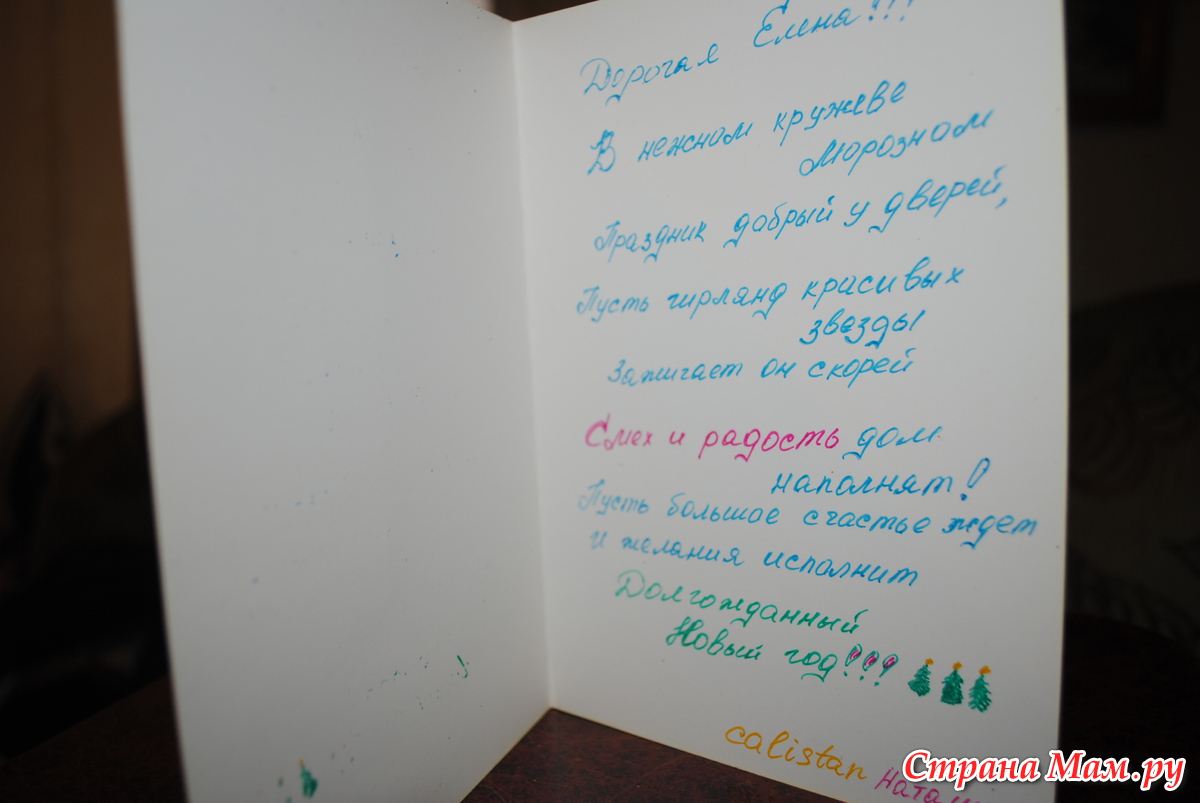 Дорогая Елена!!!
В нежном кружеве
Морозном
Праздник добрый у дверей,
Пусть гирлянд красивых
звезды
Зажигает он скорей
Смех и радость дом
наполнят!
Пусть большое счастье ждет
и желания исполнит
Долгожданный
Новый год!!!
calistan
Страна Мам.ру